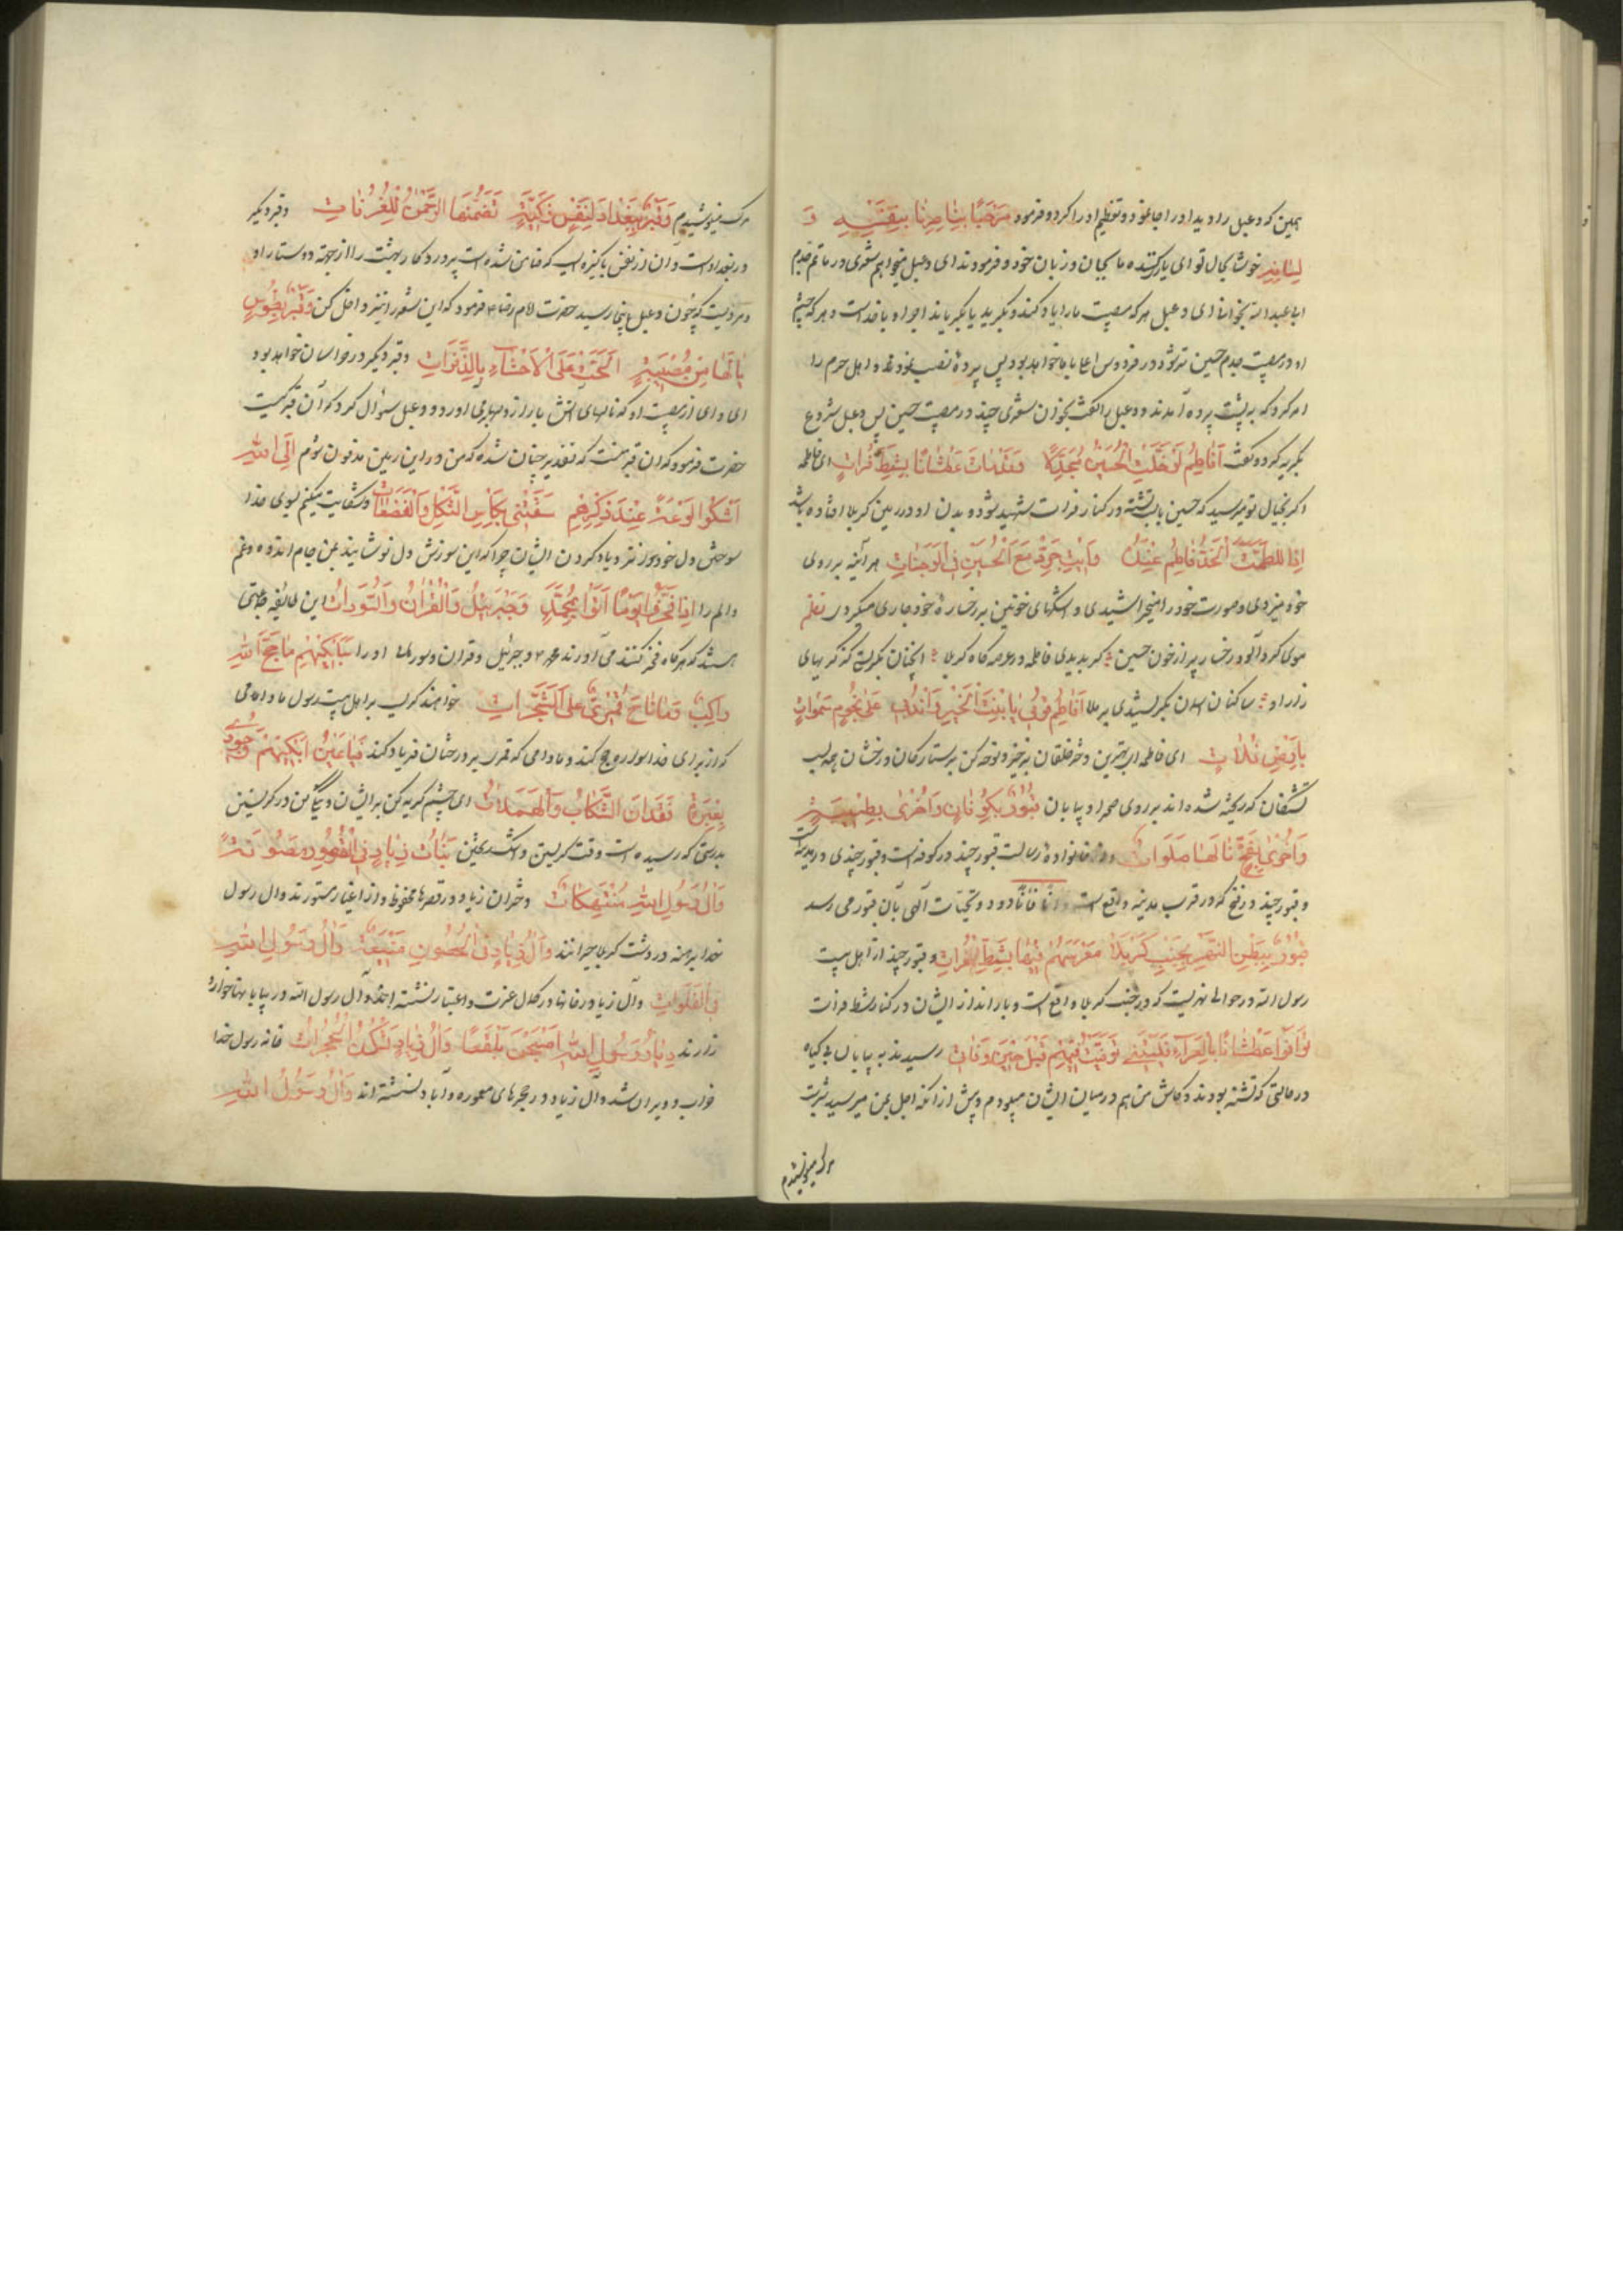 همین که دعبل را دید او را جا نمود و تعظیم او را کرد و فرمود مَرْحَبًا بِنَاصِرِنَا بِیَدِهِ وَ
لِسَانِهِ خوشا بحال تو ای یاری کننده ما بجان و زبان خود و فرمودند ای دعبل میخواهم شعری در ماتم جدم
ابی عبد الله بخوانی ای دعبل هر که مصیبت ما را یاد کند و بگرید یا بگریاند اجر او با خداست و هر که چشم
او در مصیبت جدم حسین تر شود در فردوس اعلی با ما خواهد بود پس پرده نصب نمودند و اهل حرم را
امر کرد که به پشت پرده آمدند و دعبل را گفت بخوان شعری چند در مصیبت حسین پس دعبل شروع
بگریه کرد و گفت اَفَاطِمُ لَوْ خِلْتِ الْحُسَیْنَ مُجَدَّلًا وَقَدْ مَاتَ عَطْشَانًا بِشَطِّ فُرَاتٍ ای فاطمه
اگر بخیال تو میرسید که حسین با لب تشنه در کنار فرات شهید شود و بدن او در زمین کربلا افتاده باشد
اِذًا لَلَطَمْتِ الْخَدَّ فَاطِمُ عِنْدَهُ وَاَجْرَیْتِ دَمْعَ الْعَیْنِ فِی الْوَجَنَاتِ هر آینه بر روی
خود میزدی و صورت خود را میخراشیدی و اشکهای خونین بر رخساره خود جاری میکردی نظم
موی گردآلود و رخسار پر از خون حسین گر بدیدی فاطمه در عرصه گاه کربلا آنچنان بگریستی کز گریهای
زار او ساکنان آسمان بگریستندی بر ملا اَفَاطِمُ قُومِی یَا ابْنَةَ الْخَیْرِ وَانْدُبِی عَلَی نُجُومِ سَمَوَاتٍ
بِاَرْضِ فَلَاتٍ ای فاطمه ای بهترین دختر خلقان برخیز و نوحه کن بر ستارگان درخشان
تشنگان که ریخته شده اند بر روی صحرا و بیابان قُبُورٌ بِکُوفَانٍ وَاُخْرَی بِطِیبَةٍ
وَاُخْرَی بِفَخٍّ نَالَهَا صَلَوَاتٌ خانواده رسالت قبور چند در کوفه است و قبور چندی در مدینه است
و قبور چند در فخ که در قرب مدینه واقع است درود و تحیات الهی بآن قبور می رسد
قُبُورٌ بِبَطْنِ النَّهْرِ بِجَنْبِ کَرْبَلَا مُعَرَّسُهُمْ فِیهَا بِشَطِّ الْفُرَاتِ و قبور چند از اهل بیت
رسول الله در حوالی نهریست که در جنب کربلا واقع است و بار انداز ایشان در کنار شط فرات
تُوُفُّوا عِطَاشًا بِالْعَرَاءِ فَلَیْتَنِی تُوُفِّیتُ فِیهِمْ قَبْلَ حِینَ وَفَاتِی رسیدند به بیابان بی گیاه
در حالتی که تشنه بودند و کاش من هم در میان ایشان میبودم و پیش از آنکه اجل بمن میرسید شربت
مرک مینوشیدم
مرک مینوشیدم وَقَبْرٌ بِبَغْدَادَ لِنَفْسٍ زَکِیَّةٍ تَضَمَّنَهَا الرَّحْمَنُ لِلْغُرُفَاتِ وقبر دیگر
در بغداد است و آن از نفس پاکیزه ایست که ضامن شده است پروردگار بهشت را از جهة دوستار او
مرویست که چون دعبل باینجا رسید حضرت امام رضا ع فرمود که این شعر را نیز داخل کن وَقَبْرٌ بِطُوسٍ
یَا لَهَا مِنْ مُصِیبَةٍ اَلَحَّتْ عَلَی الْاَحْشَاءِ بِالزَّفَرَاتِ وقبر دیگر در خراسان خواهد بود
ای وای از مصیبت او که نالهای آتش بار از دلها بر می آورد و دعبل سؤال کرد که آن قبر کیست
حضرت فرمود که آن قبر منست که تقدیر چنان شده که من در این زمین مدفون شوم اِلَی اللّٰهِ
اَشْکُو لَوْعَةً عِنْدَ ذِکْرِهِمْ سَقَتْنِی بِکَأْسِ الثُّکْلِ وَالْفَضَعَاتِ و شکایت میکنم بسوی خدا
سوختن دل خود را نزد یاد کردن ایشان چرا که این سوزش دل نوشانید بمن جام اندوه و غم
و الم را اِذَا فَخَرُوا یَوْمًا اَتَوْا بِمُحَمَّدٍ وَجَبْرَئِیلَ وَالْقُرْآنِ وَالسُّوَرَاتِ این طایفه جماعتی
هستند که هرگاه فخر کنند می آورند محمد ص و جبرئیل و قرآن و سورها او را سَاَبْکِیهِمْ مَا حَجَّ لِلّٰهِ
رَاکِبٌ وَمَا نَاحَ قُمْرِیٌّ عَلَی الشَّجَرَاتِ خواهند گریست بر اهل بیت رسول مادامی
که از برای خدا سواره حج کند و مادامی که قمری بر درختان فریاد کند فَیَا عَیْنُ ابْکِیهِمْ وَجُودِی
بِعَبْرَةٍ فَقَدْ اٰنَ التَّسْکَابُ وَالْهَمَلَاتُ ای چشم گریه کن بر ایشان در گریستن
بدرستی که رسیده است وقت گریستن و اشک ریختن بَنَاتُ زِیَادٍ فِی الْقُصُورِ مَصُونَةً
وَاٰلُ رَسُولِ اللّٰهِ مُنْتَهِکَاتٌ دختران زیاد در قصرها محفوظ و از اغیار مستورند و آل رسول
خدا برهنه در دشت کربلا حیرانند وَاٰلُ زِیَادٍ فِی الْحُصُونِ مَنِیعَةً وَاٰلُ رَسُولِ اللّٰهِ
فِی الْفَلَوَاتِ و آل زیاد در خانها در کمال عزت و اعتبار نشسته اند و آل رسول الله در بیابانها خوار و
زارند دِیَارُ رَسُولِ اللّٰهِ اَصْبَحْنَ بَلْقَعًا وَاٰلُ زِیَادٍ تَسْکُنُ الْحُجُرَاتِ خانه رسول خدا
خراب و ویران شد و آل زیاد در حجرهای معموره و آباد نشسته اند وَاٰلُ رَسُولِ اللّٰهِ